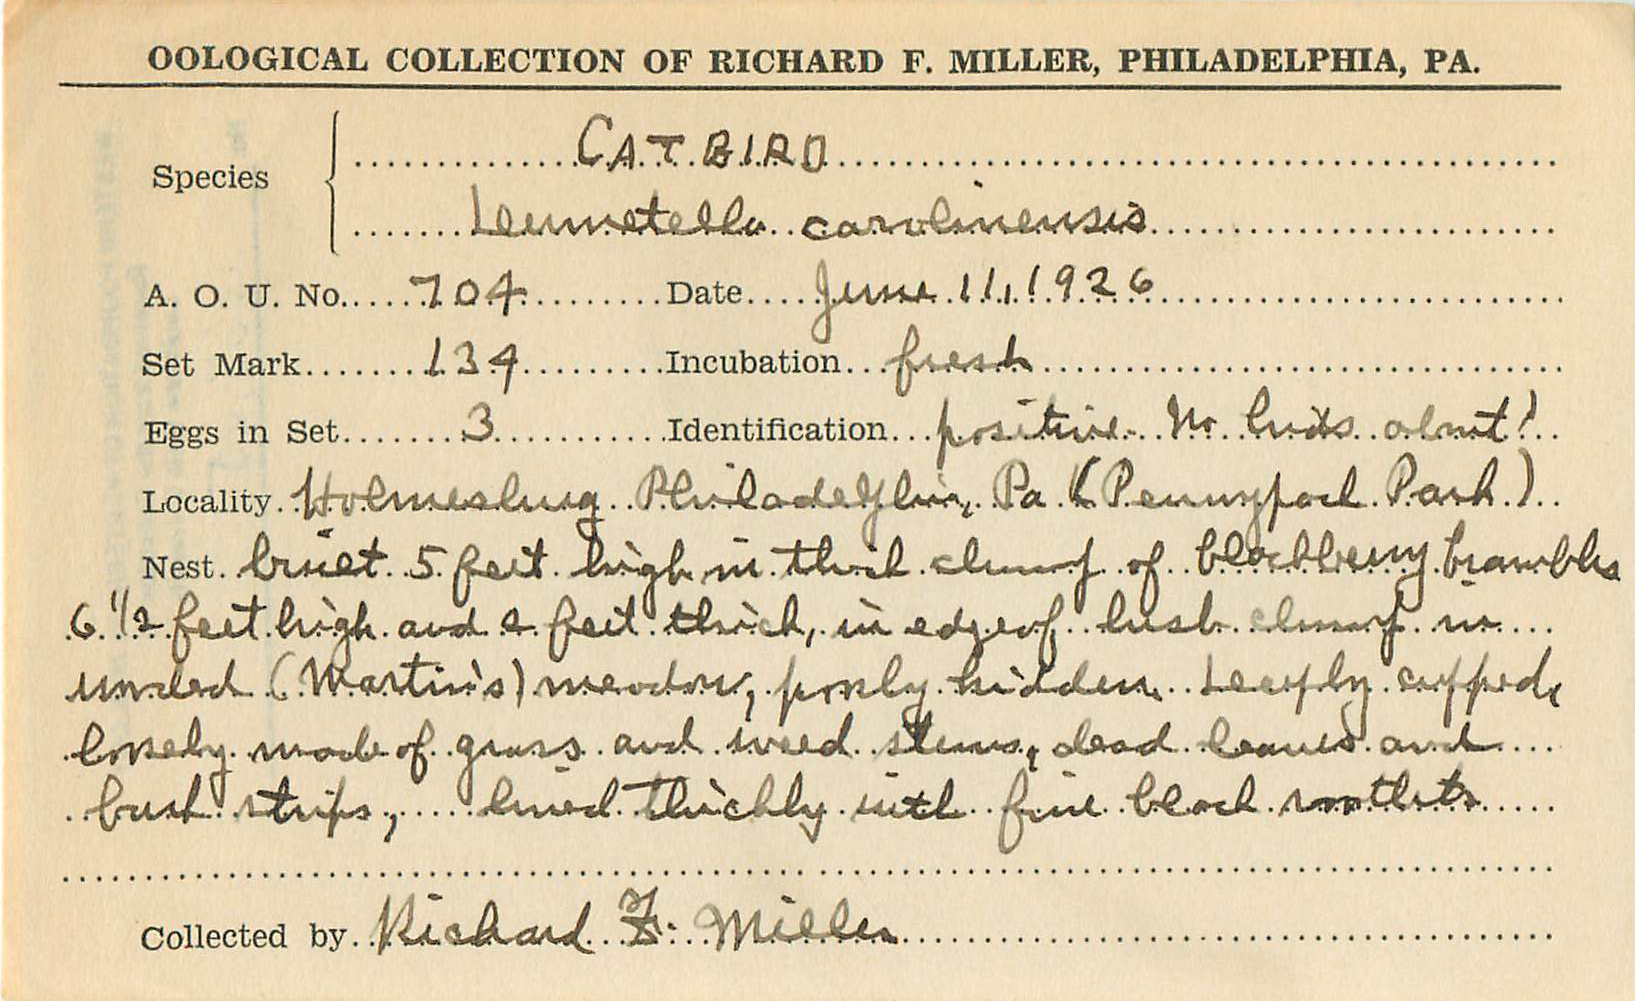 OOLOGICAL COLLECTION OF RICHARD F. MILLER, PHILADELPHIA, PA.
Species CATBIRD
Dumetella carolinensis
A. O. U. No. 704 Date June 11, 1926
Set Mark 134 Incubation fresh
Eggs in Set 3 Identification positive. No birds about!
Locality Holmesburg Philadelphia, Pa (Pennypack Park)
Nest built 5 feet high in thick clump of blackberry brambles
6 1/2 feet high and 2 feet thick, in edge of bush clump in
wooded (Martin's) meadow, poorly hidden. Deeply cupped,
loosely made of grass and weed stems, dead leaves and
bark strips, lined thickly with fine black rootlets
Collected by Richard F. Miller